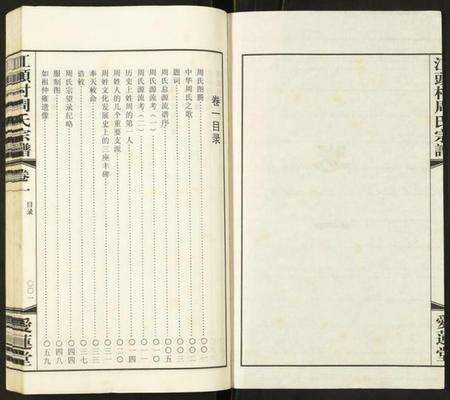 江頭村周氏宗譜
愛蓮堂
卷一目录
周氏图腾
中华周氏之歌 〇〇二
题词 〇〇三
周氏总源流谱序 〇〇五
周氏源流考（一）
周氏源流考（二）
历史上姓周的第一人 〇一四
周姓人的几个重要支派 〇二〇
周姓文化发展史上的三座丰碑 〇三一
奉天敕命 〇三三
诰敕 〇三七
周氏宗望录纪略 〇四四
服制图 〇四八
如祖仲雍遗像 〇五九
江頭村周氏宗譜
卷一
目录
〇〇一
愛蓮堂